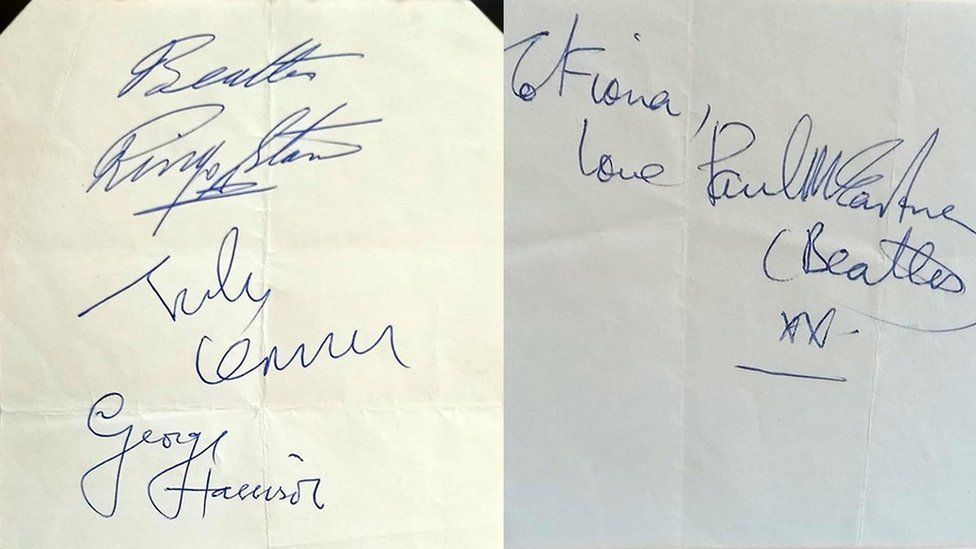 Beatles
Ringo Starr
John
Lennon
George
Harrison
to Fiona,
love Paul McCartney
(Beatles
xx.